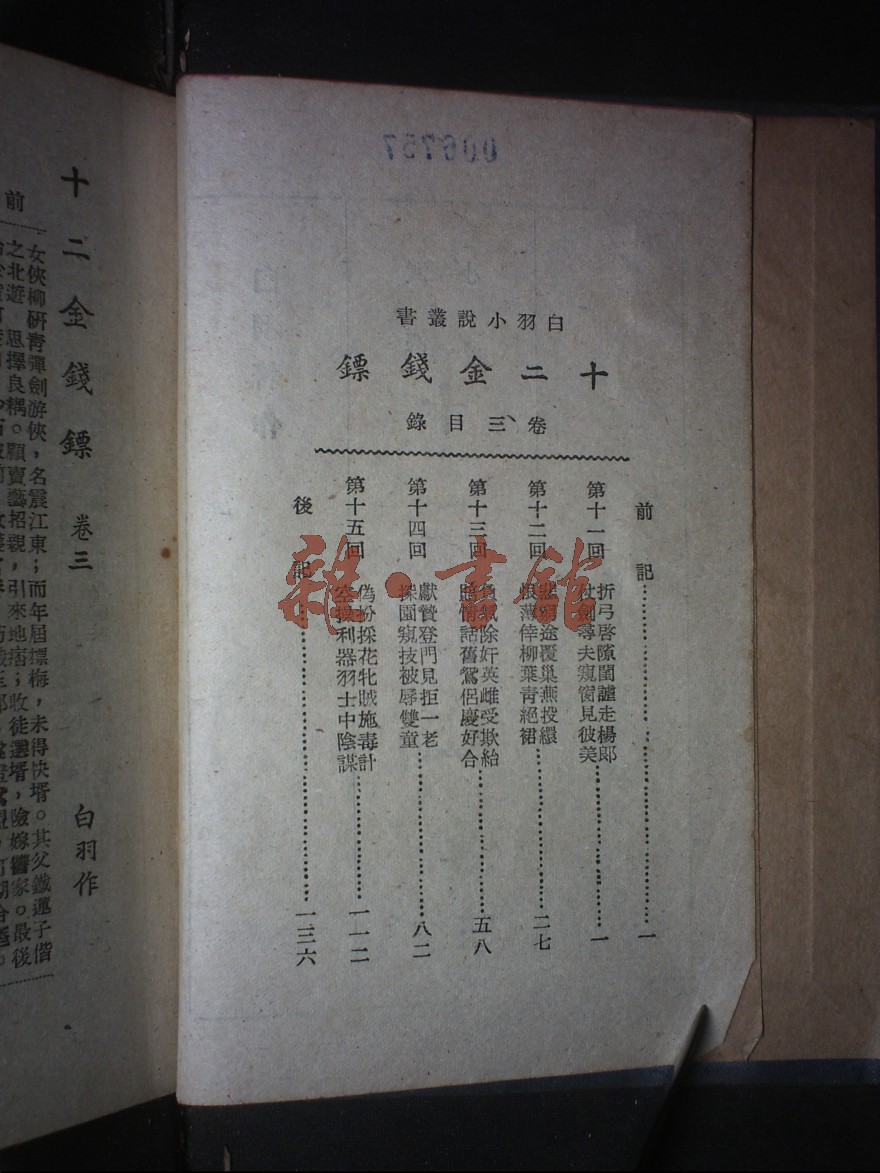 白羽小說叢書
十二金錢鏢
卷三目錄
前記 一
第十一回 折弓啓隙閨謔走楊郎 仗劍尋夫窺窗見彼美 一
第十二回 悲窮途覆巢燕投繯 恨薄倖柳葉青絕裾 二七
第十三回 除奸英雌受欺紿 情話舊鴛侶慶好合 五八
第十四回 獻贄登門見拒一老 探園窺技被辱雙童 八二
第十五回 偽扮採花牝賊施毒計 空操利器羽士中陰謀 一一二
後記 一三六
十二金錢鏢 卷三 白羽作
前
女俠柳研青彈劍游俠，名震江東；而年屆摽梅，未得快壻。其父鐵蓮子偕
之北遊 思擇良耦。顧賣藝招親，引來地痞；收徒選壻，險嫁讐家。最後
006757
雜·書館